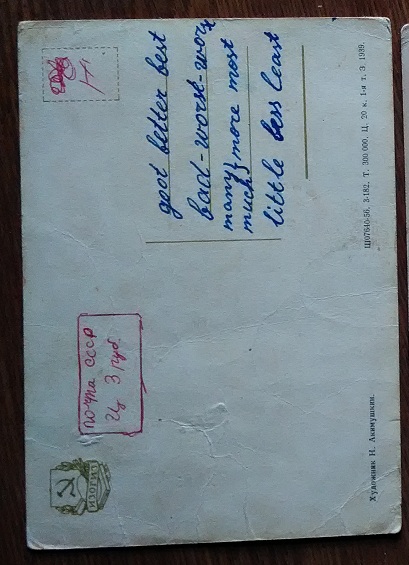 good better best
bad - worse - worst
many } more most
much
little less least
ПОЧТА СССР
Ц 3 руб
ИЗОГИЗ
Художник Н. Акимушкин.
Ш07640-56. З-182. Т. 300.000. Ц. 20 к. 1-я т. З. 1989.